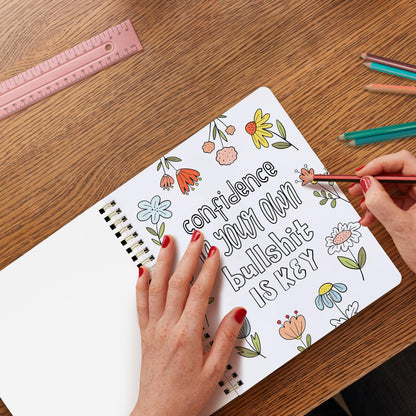 confidence
IN
YOUR OWN
bullshit
IS KEY